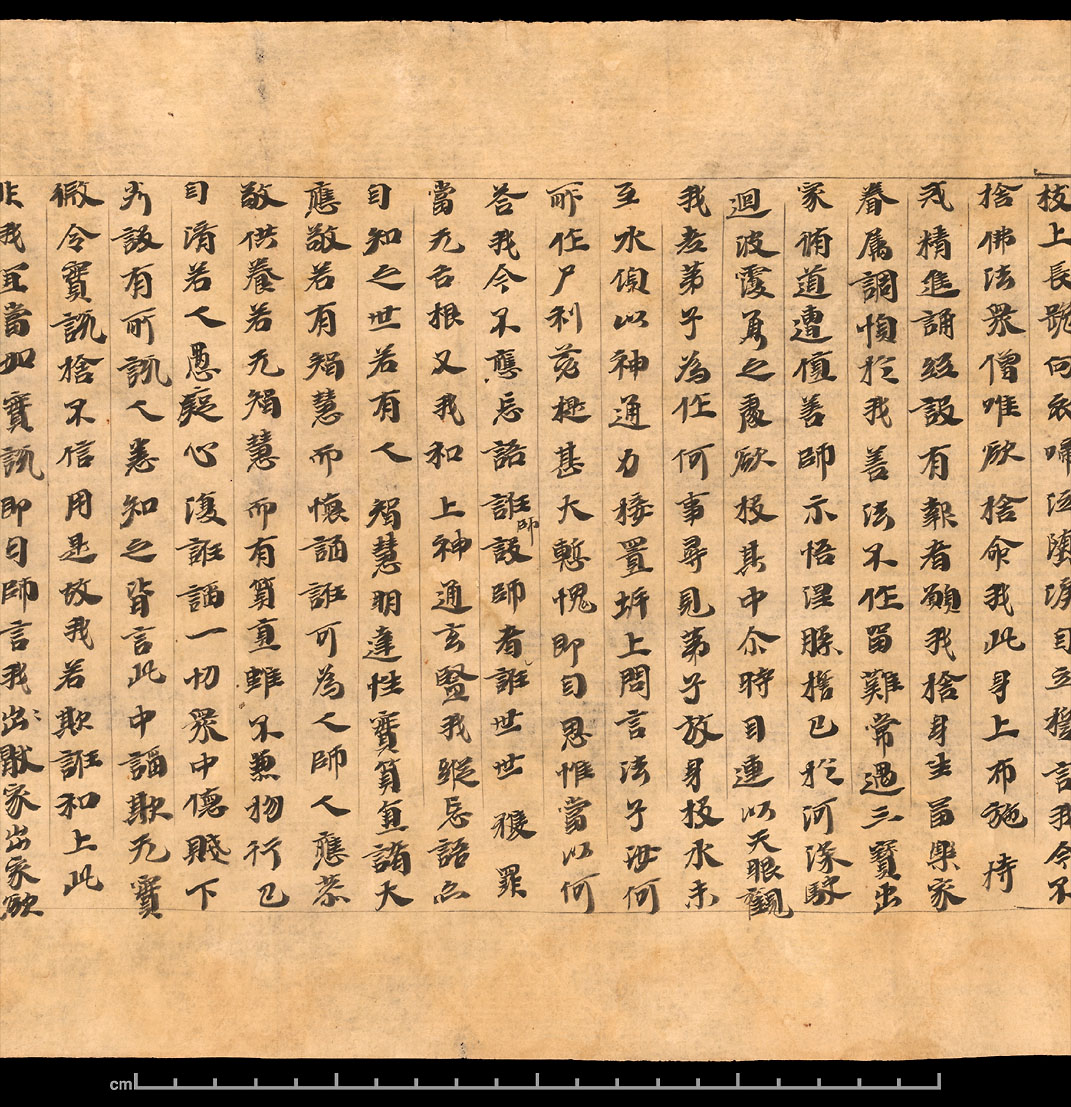 枝上長號向家啼泣墮淚自立擔言我今不
捨佛法眾僧唯欲捨命我此身上布施持
戒精進誦經設有報者願我捨身生富樂家
眷屬調慎於我善法不作留難常遇三寶出
家循道遭值善師示悟涅槃捨已於河深駛
迴波覆涌之處欲投其中尒時目連以天眼觀
我老弟子為作何事尋見弟子放身投水未
至水傾以神通力接置岍上問言法子汝何
所作尸利苾提甚大慙愧即自思惟當以何
荅我今不應忘語誑師設師者誑世世獲罪
當无舌根又我和上神通玄鑒我蹤忘語亦
自知之世若有人 智慧明達性實質直諸天
應敬若有智慧而懷諂誑可為人師人應恭
敬供養若无智慧而有質直雖不兼物行已
自濟若人愚癡心復誑諂一切眾中德賤下
劣設有所說人悉知之皆言此中諂欺无實
微令實說捨不信用是故我若欺誑和上此
非我宜當如實說即白師言我出猒家出家欲